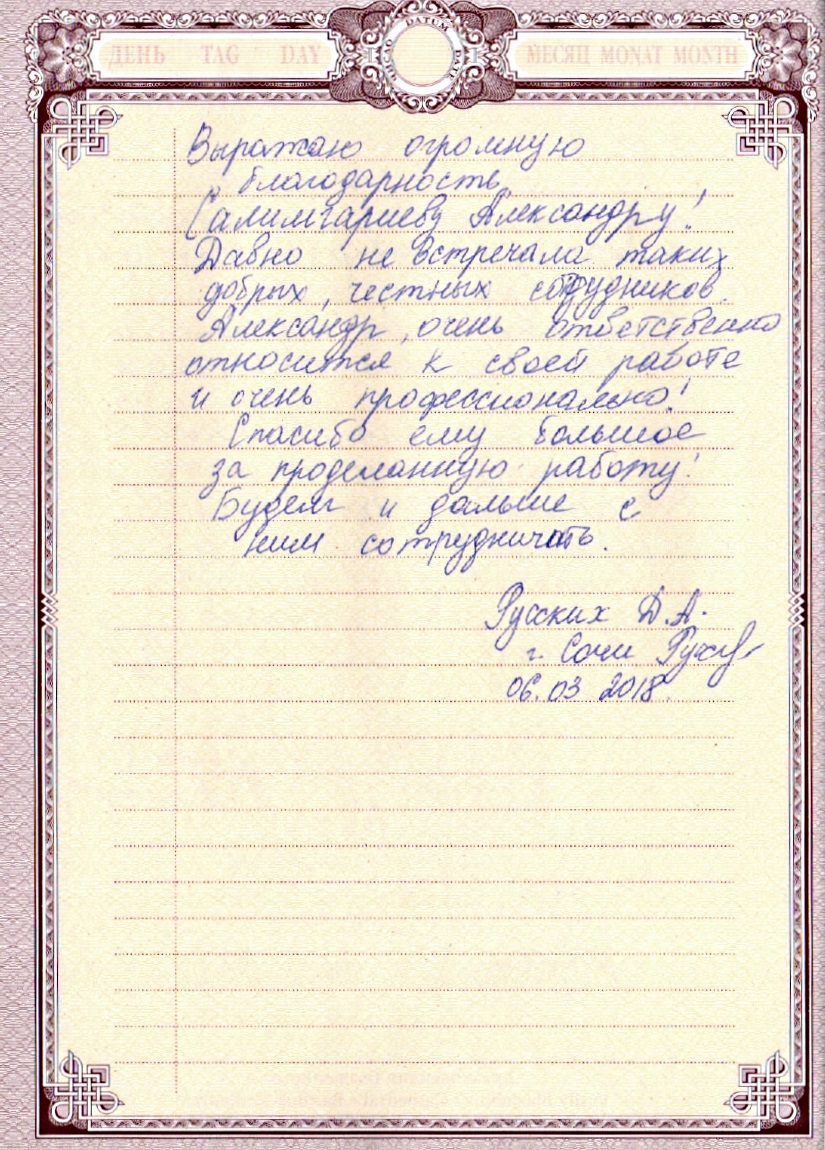 ДЕНЬ TAG DAY
DATUM
МЕСЯЦ MONAT MONTH
Выражаю огромную
благодарность
Салимгариеву Александру!
Давно не встречала таких
добрых, честных сотрудников.
Александр, очень ответственно
относится к своей работе
и очень профессионально!
Спасибо ему большое
за проделанную работу!
Будем и дальше с
ним сотрудничать.
Русских Д.А.
г. Сочи
06.03 2018.